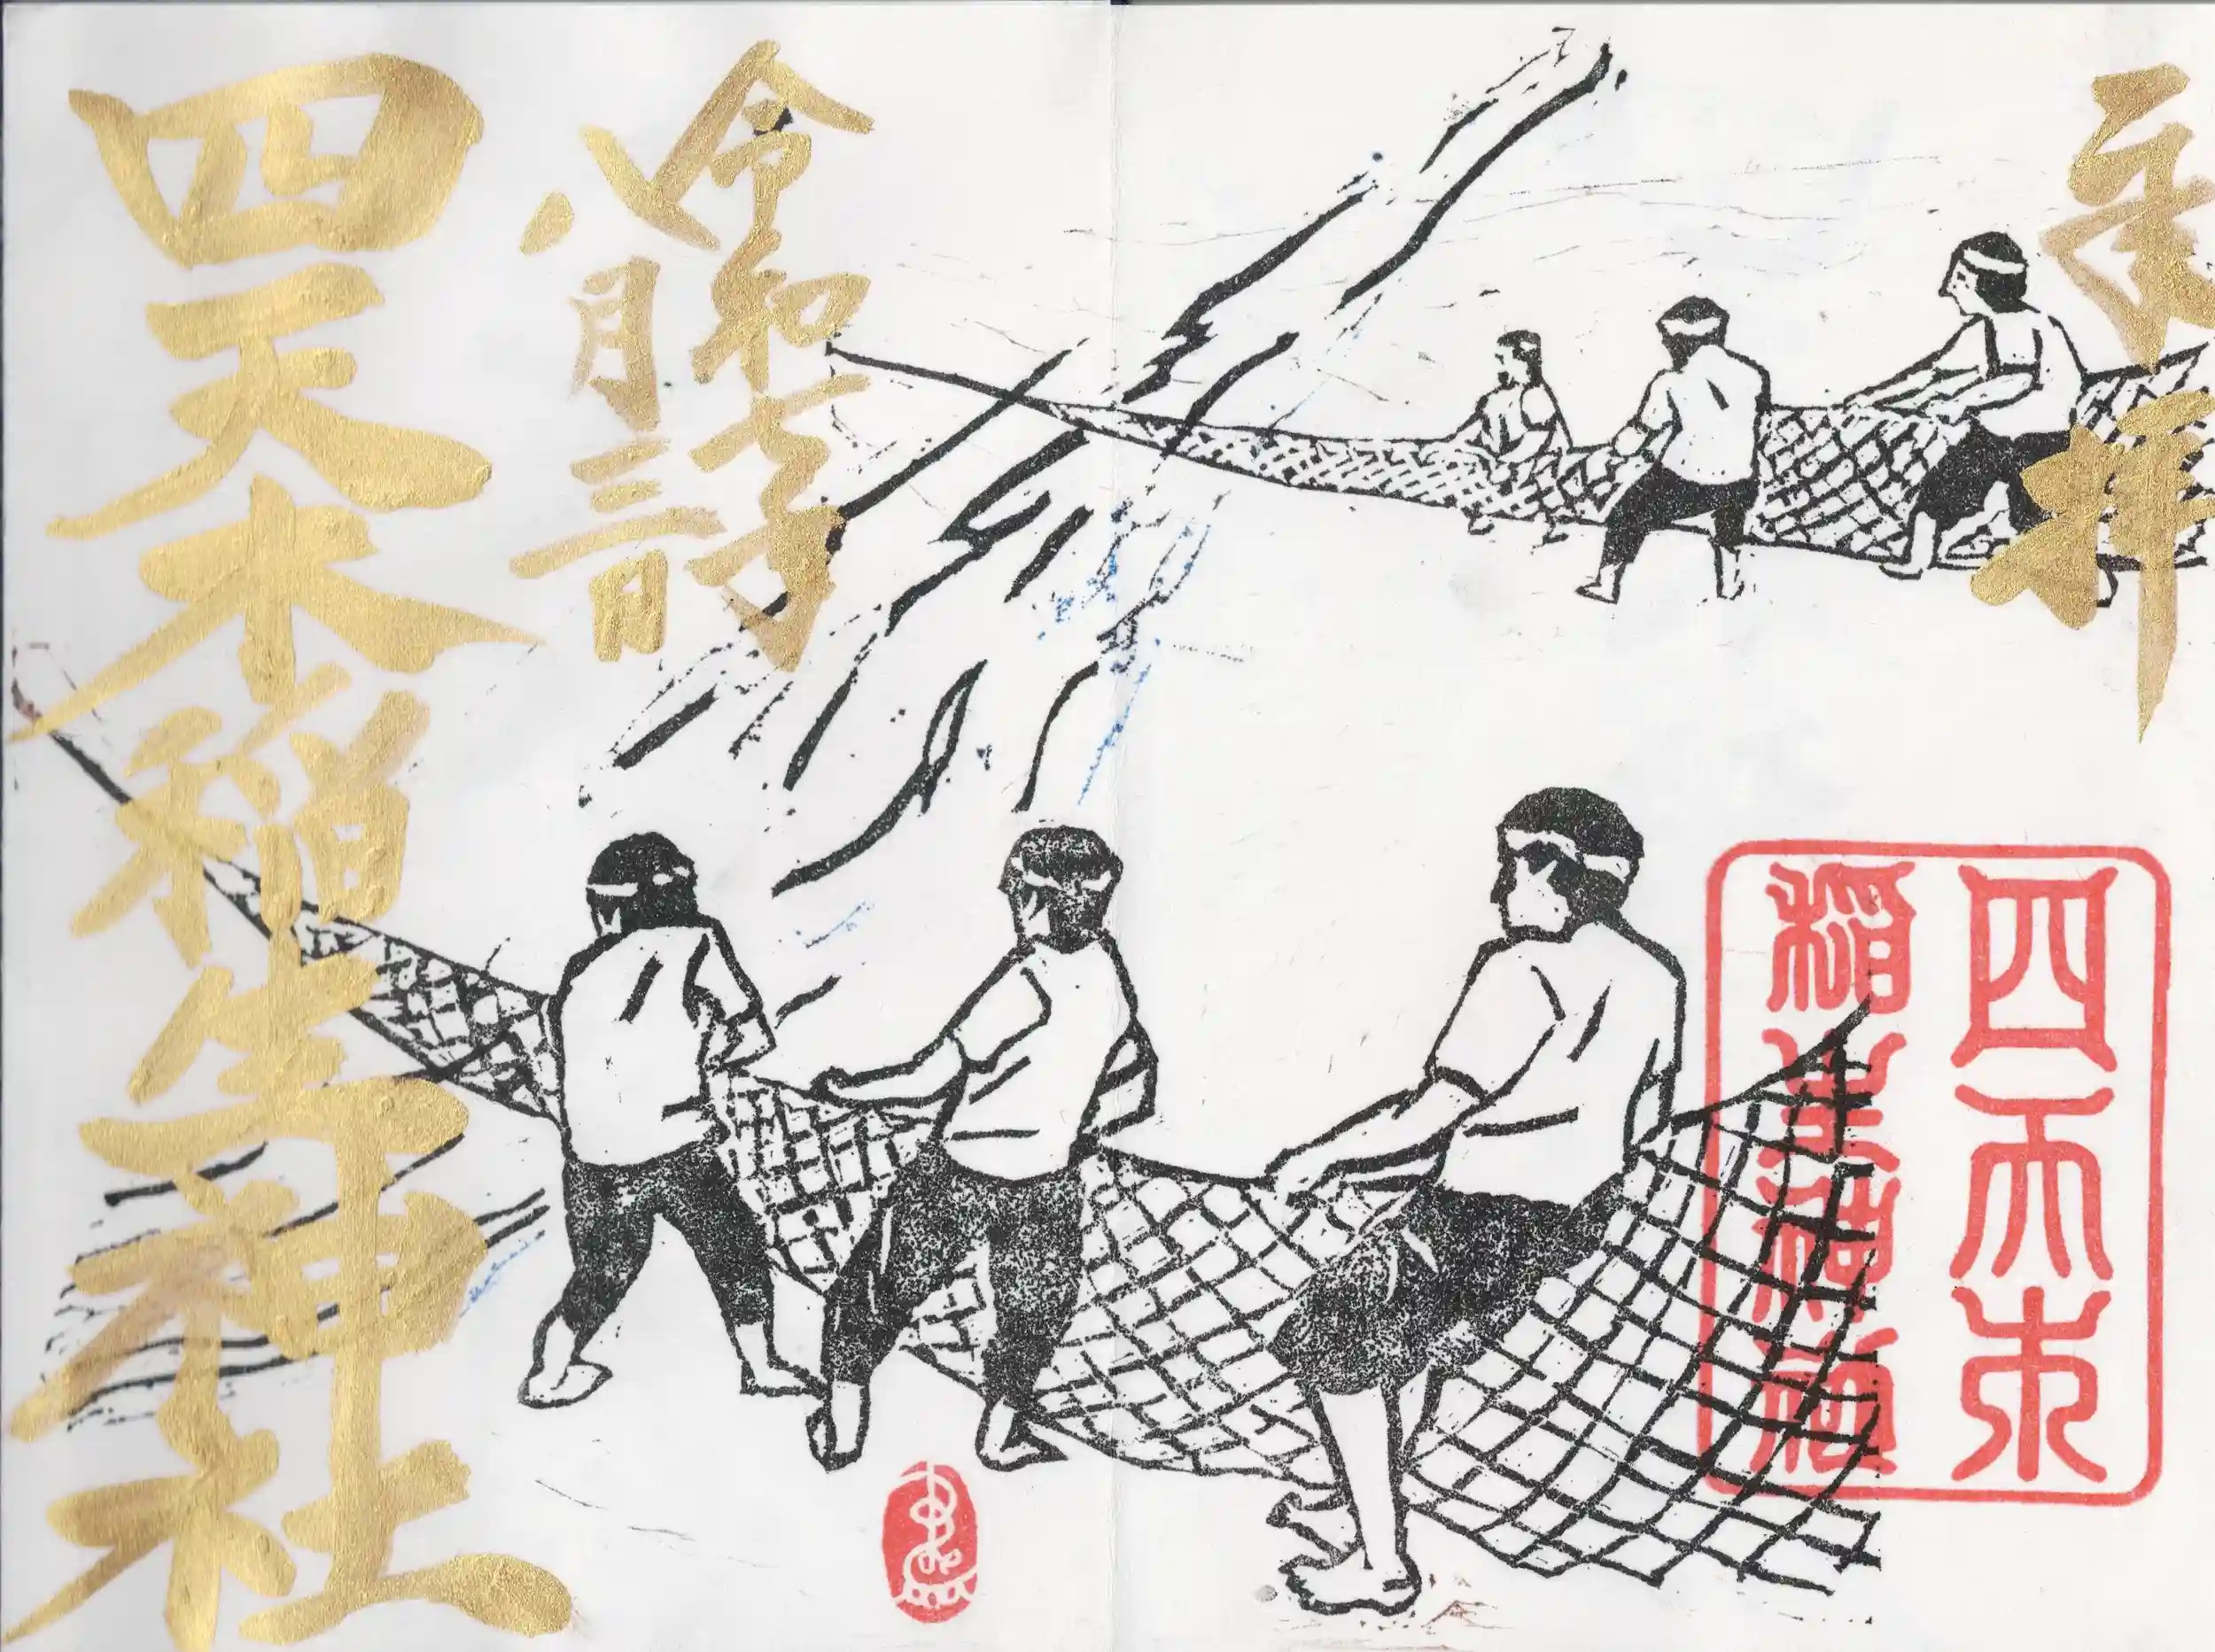 奉拝
四天木
稲生神社
令和年
八月三日
四天木稲生神社